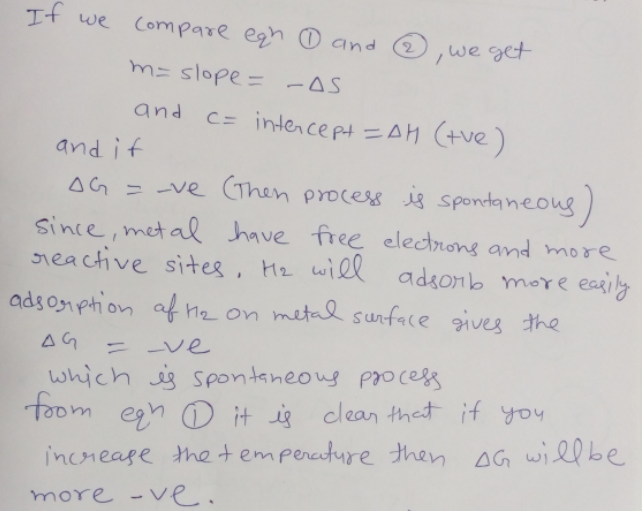 If we compare eqn ① and ②, we get
m = slope = -ΔS
and c = intercept = ΔH (+ve)
and if
ΔG = -ve (Then process is spontaneous)
Since, metal have free electrons and more
reactive sites, H2 will adsorb more easily
adsorption of H2 on metal surface gives the
ΔG = -ve
which is spontaneous process
from eqn ① it is clear that if you
increase the temperature then ΔG will be
more -ve.